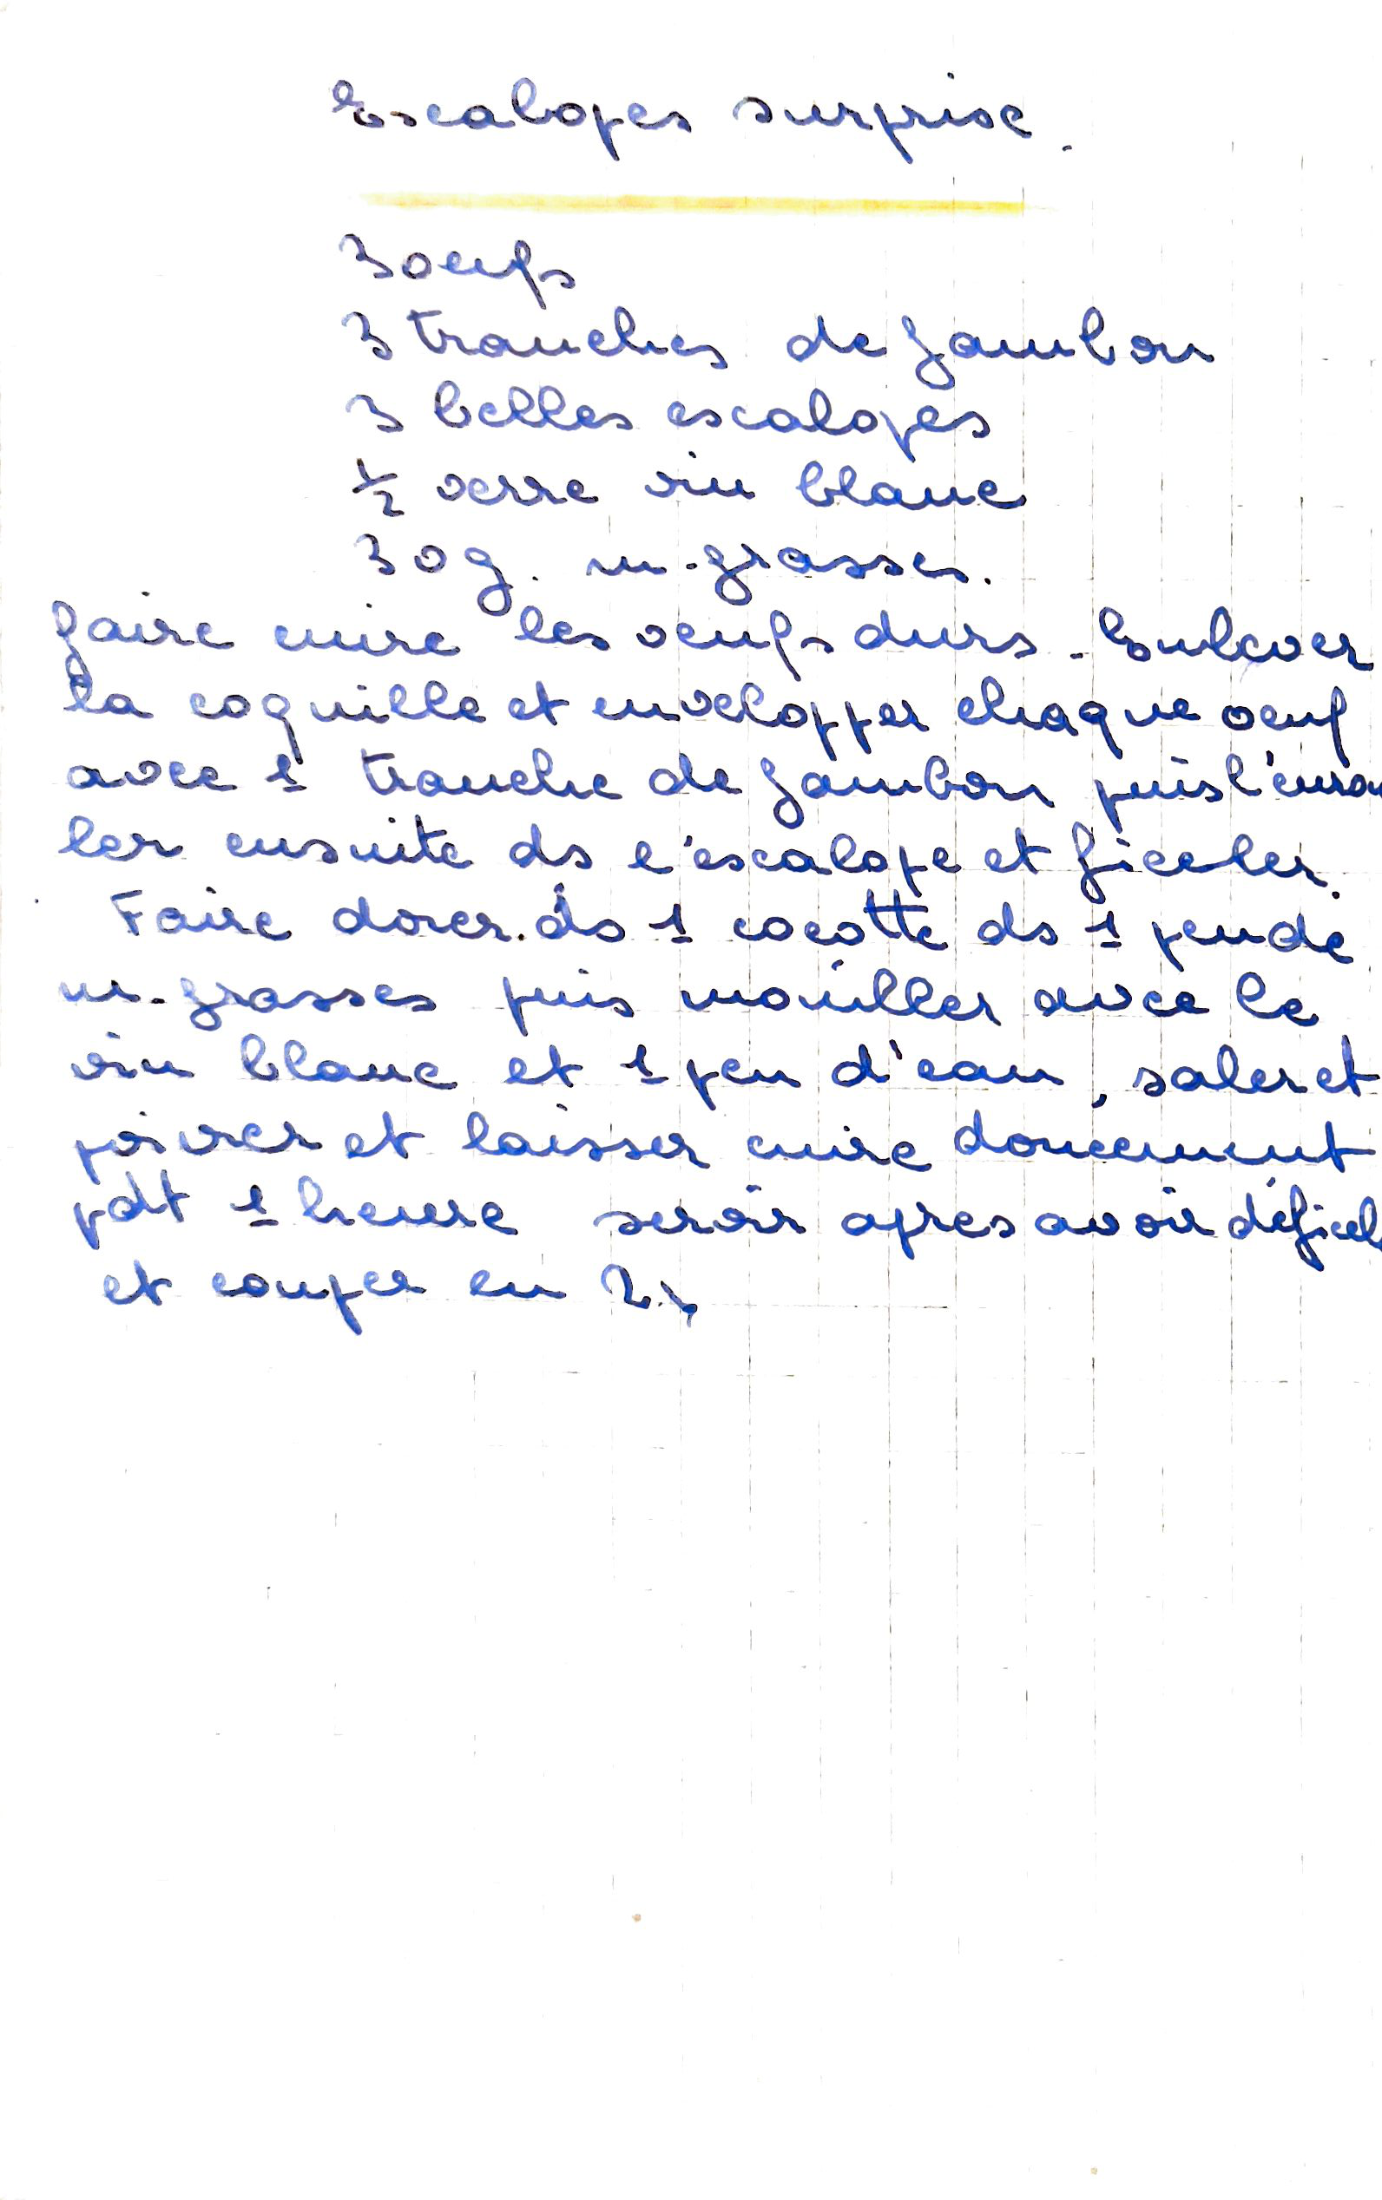 Escalopes surprise.
3 oeufs
3 tranches de jambon
3 belles escalopes
½ verre vin blanc
30g. m.grasses.
faire cuire les oeufs durs - Enlever
la coquille et envelopper chaque oeuf
avec 1 tranche de jambon puis l'enrou
ler ensuite ds l'escalope et ficeler.
Faire dorer ds 1 cocotte ds 1 peu de
m-grasses puis mouiller avec le
vin blanc et 1 peu d'eau, saler et
poivrer et laisser cuire doucement
pdt 1 heure servir apres avoir déficel
et couper en 2.